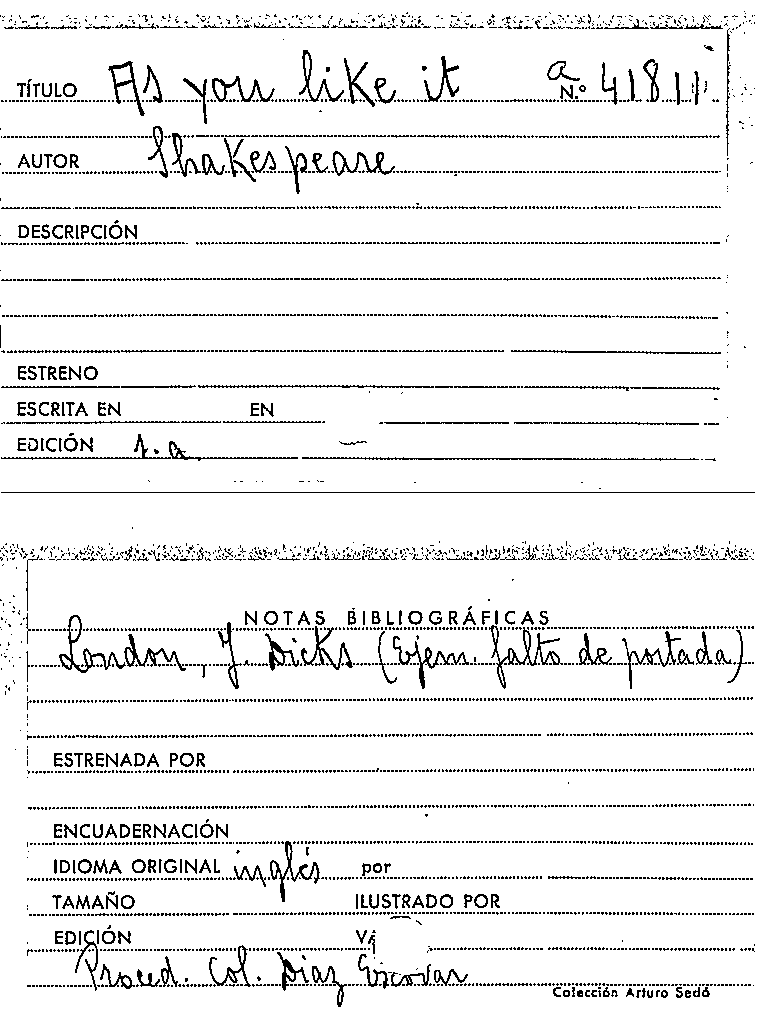 TÍTULO As you like it a N.º 41811
AUTOR Shakespeare
DESCRIPCIÓN
ESTRENO
ESCRITA EN EN
EDICIÓN s.a.
NOTAS BIBLIOGRÁFICAS
London, J. Dicks (Ejem. falto de portada)
ESTRENADA POR
ENCUADERNACIÓN
IDIOMA ORIGINAL inglés por
TAMAÑO ILUSTRADO POR
EDICIÓN
Proced. Col. Díaz Escovar
Colección Arturo Sedó